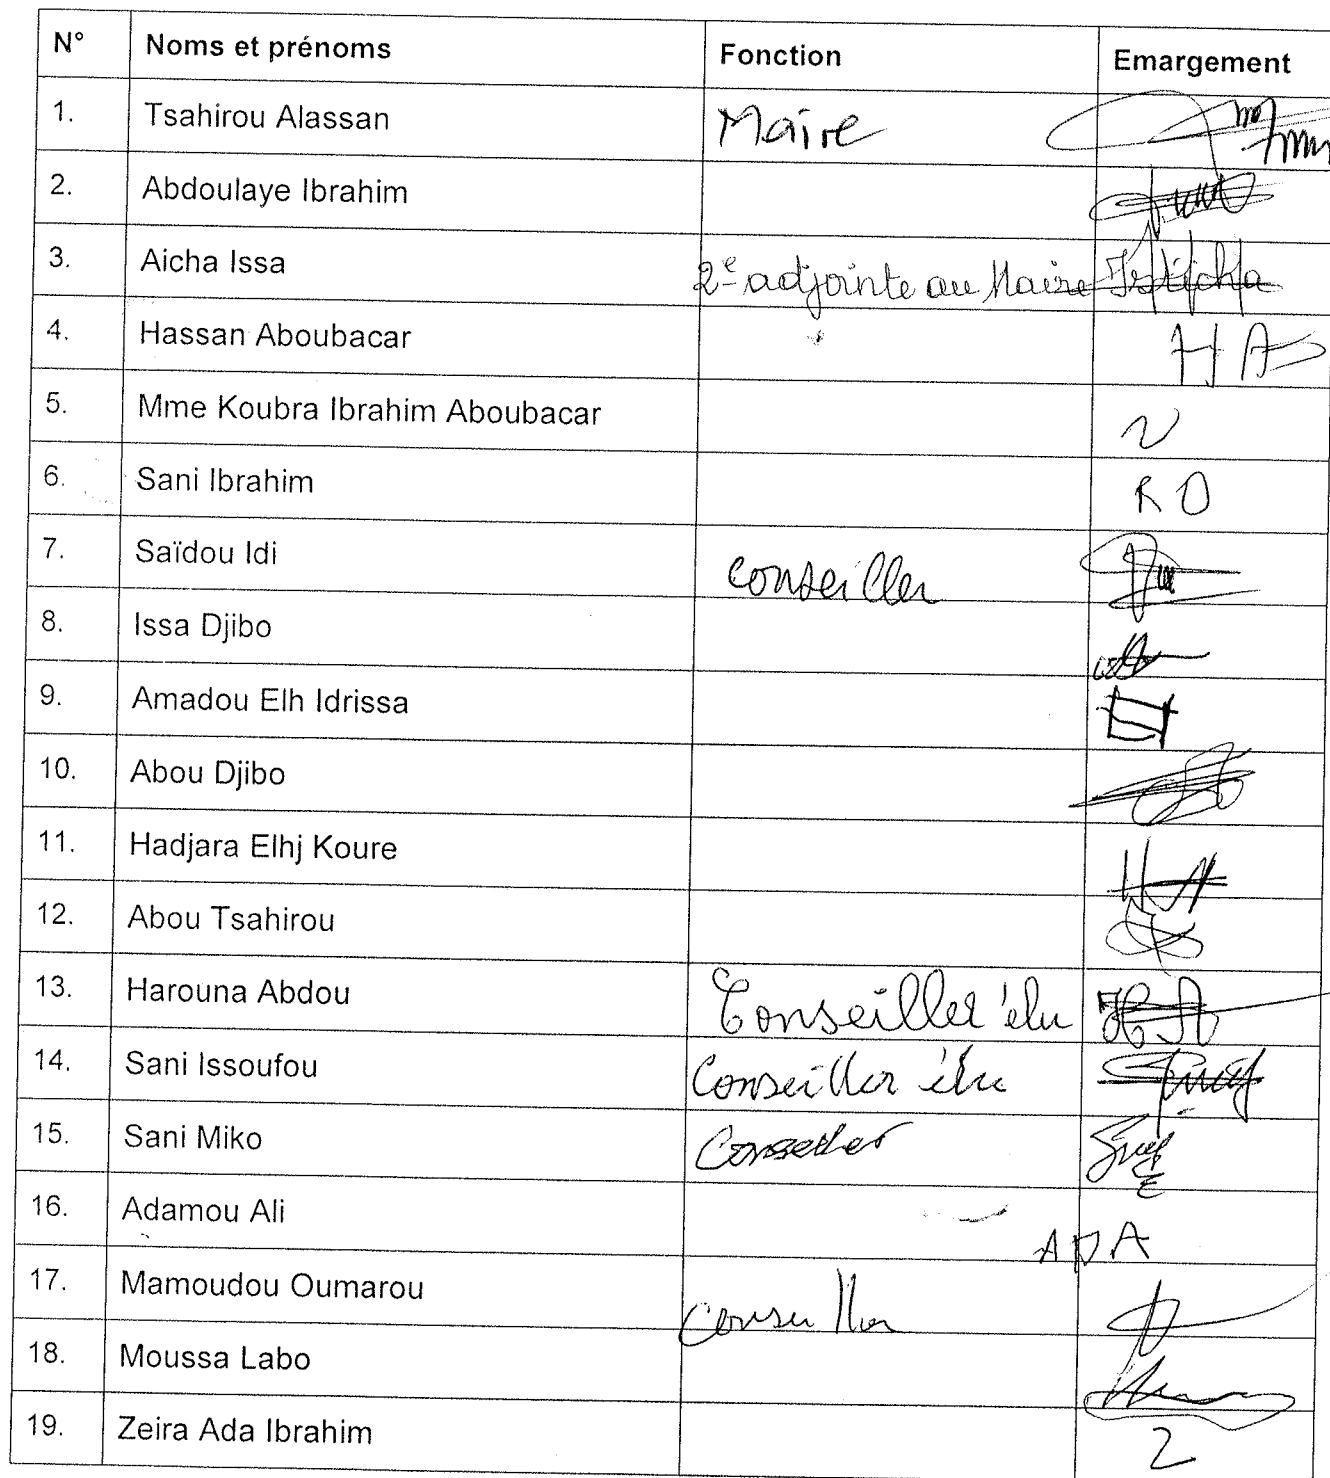 N° Noms et prénoms Fonction Emargement
1. Tsahirou Alassan Maire
2. Abdoulaye Ibrahim
3. Aicha Issa 2e adjointe au Maire
4. Hassan Aboubacar HA
5. Mme Koubra Ibrahim Aboubacar
6. Sani Ibrahim R O
7. Saïdou Idi conseiller
8. Issa Djibo
9. Amadou Elh Idrissa
10. Abou Djibo
11. Hadjara Elhj Koure
12. Abou Tsahirou
13. Harouna Abdou Conseiller élu HA
14. Sani Issoufou Conseiller élu
15. Sani Miko Conseiller
16. Adamou Ali ADA
17. Mamoudou Oumarou conseiller
18. Moussa Labo
19. Zeira Ada Ibrahim 2